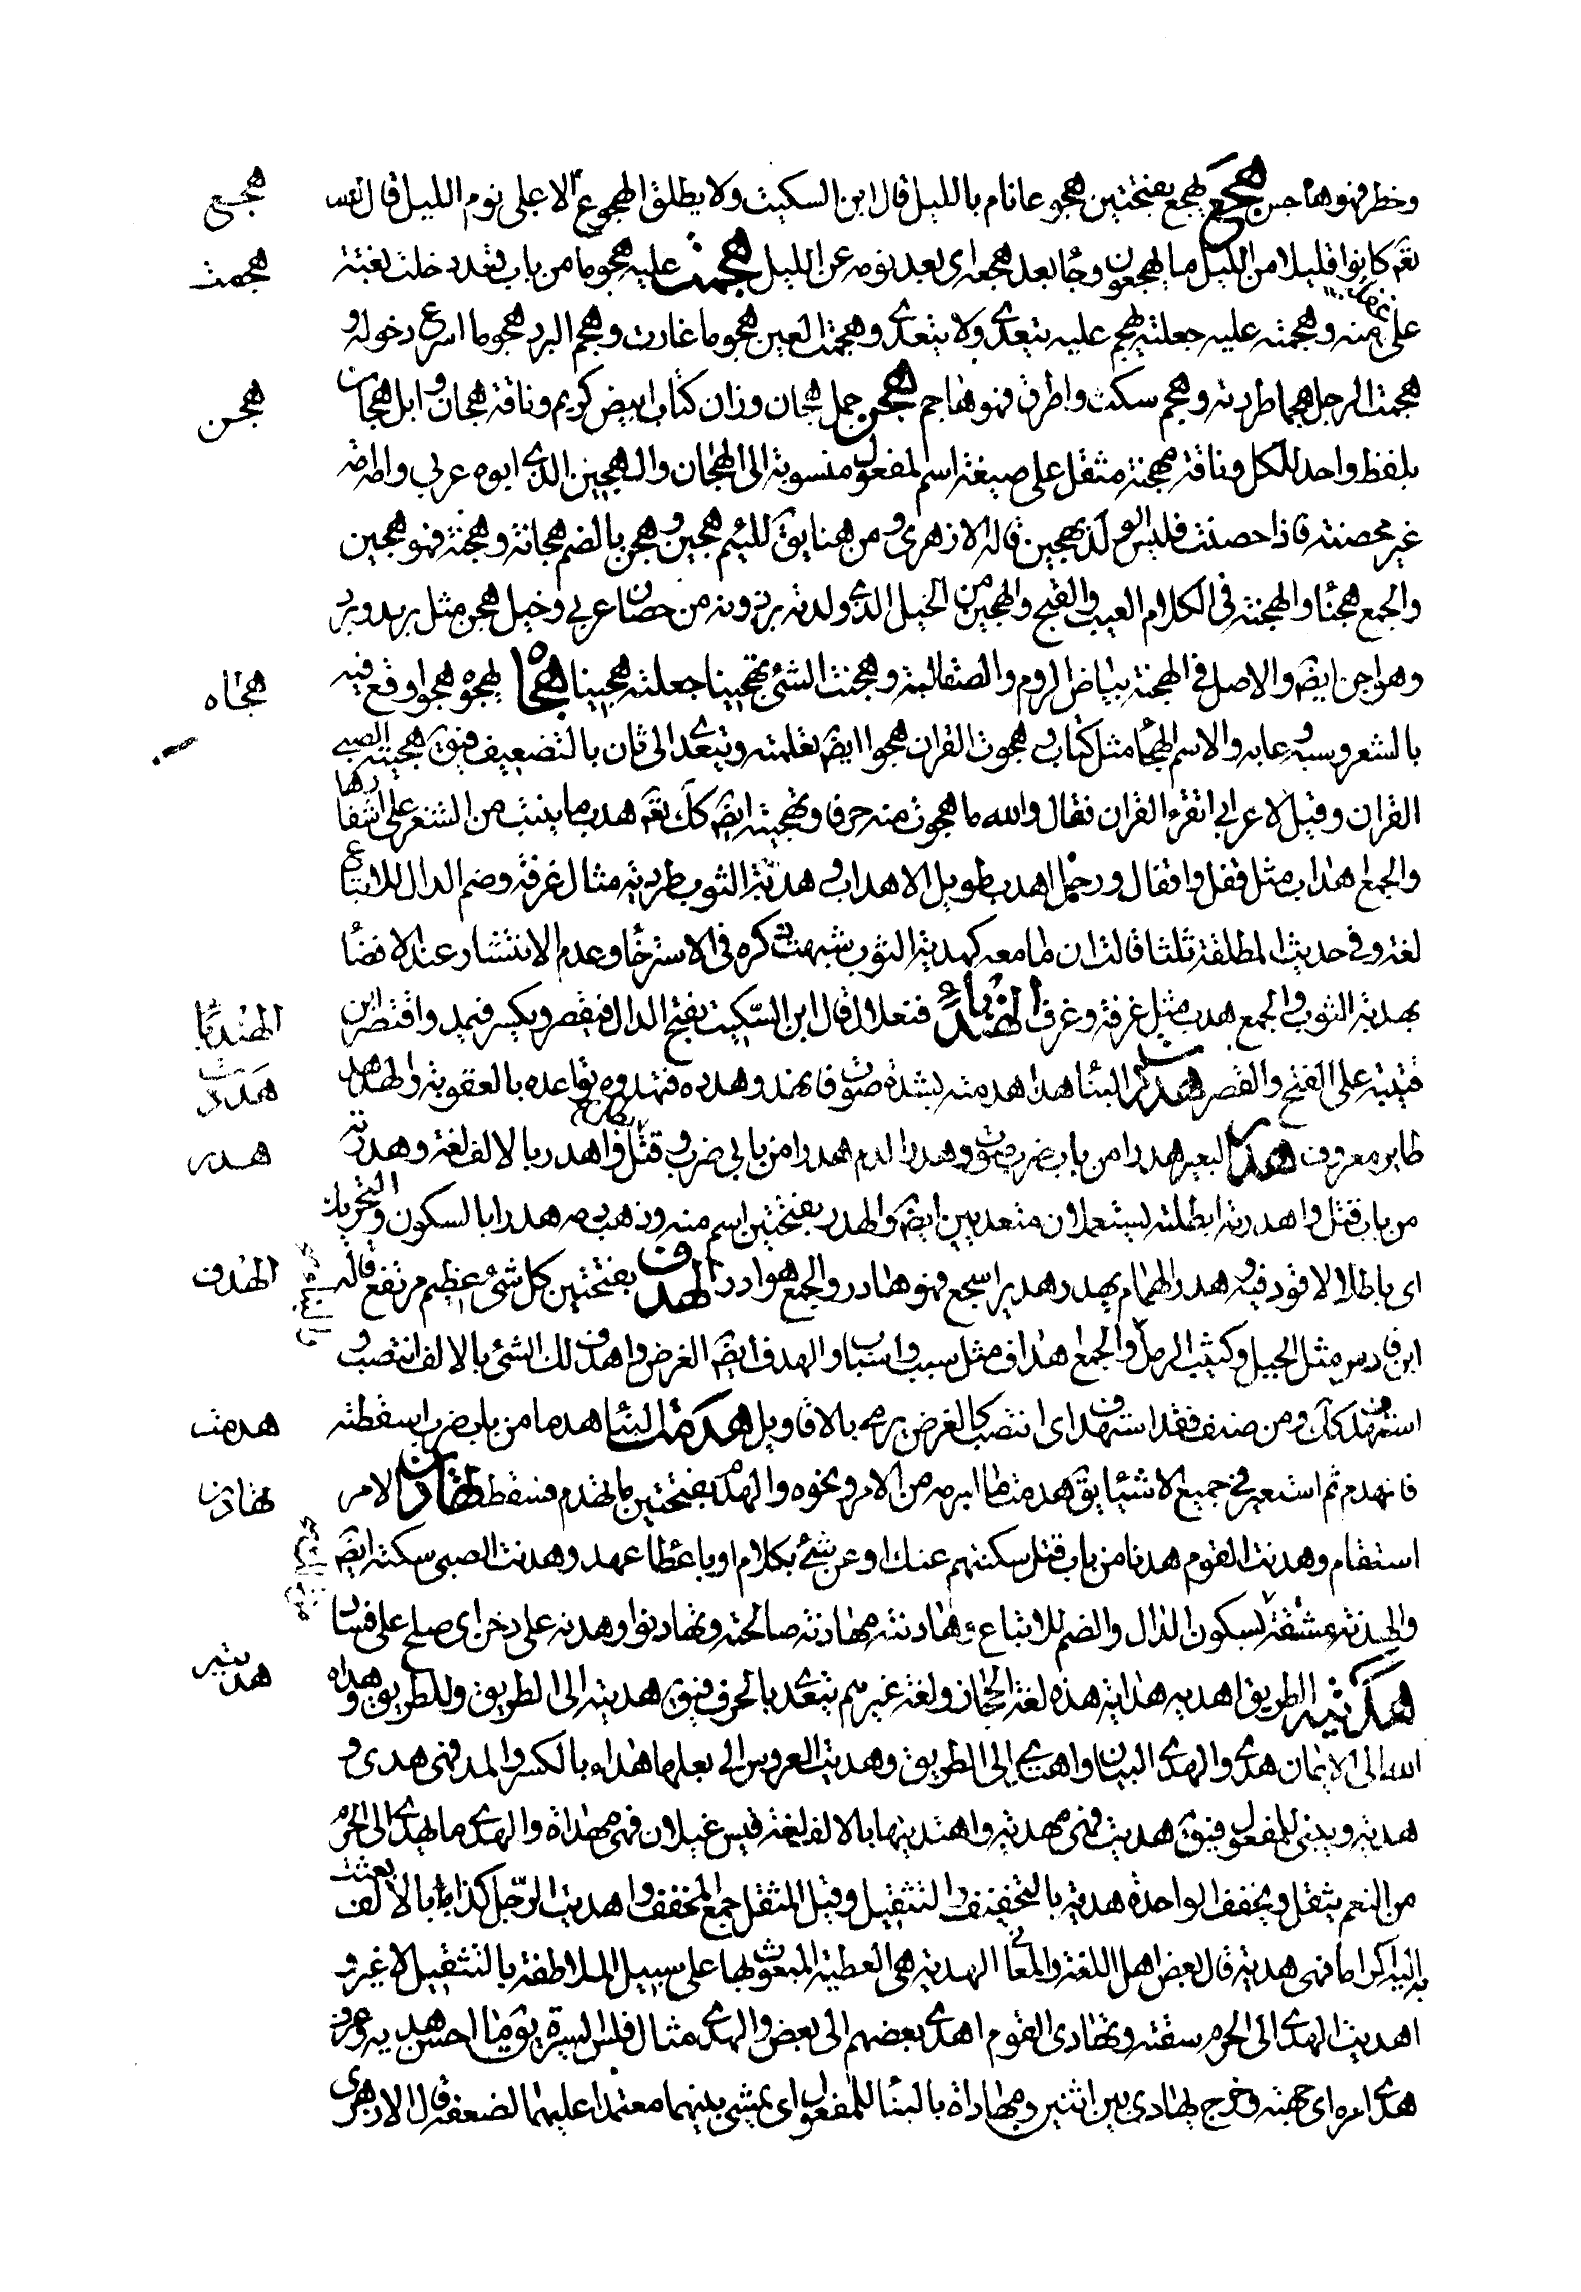 وخطر فهو هاجس هجع يهجع بفتحتين هجوعا نام بالليل قال ابن السكيت ولا يطلق الهجوع الا على نوم الليل قال الله
تعم كانوا قليلا من الليل ما يهجعون وجا بعد هجعه اى بعد نومه عن الليل هجمت عليه هجوما من باب قعد دخلت بغتة
على غفلة منه وهجمته عليه جعلته يهجم عليه يتعدى ولا يتعدى وهجمت العين هجوما غارت وهجم البرد هجوما اسرع دخوله و
هجمت الرجل هجما طردته وهجم سكت واطرق فهو هاجم هجن جمل هجان وزان كتاب ابيض كريم وناقة هجان وابل هجان
بلفظ واحد للكل وناقة مهجنة مثقل على صيغة اسم المفعول منسوبة الى الهجان والهجين الذى ابوه عربى وامه امة
غير محصنة فاذا حصنت فليس الولد بهجين قاله الازهرى ومن هنا يق للئيم هجين وهجن بالضم هجانة وهجنة فهو هجين
والجمع هجنا والهجنة فى الكلام العيب والقبح والهجين من الخيل الذى ولدته برذونة من حصان عربى وخيل هجن مثل بريد وبرد
وهواجن ايضم والاصل فى الهجنة بياض الروم والصقالبة وهجنت الشئ تهجينا جعلته هجينا هجاه يهجوه هجوا وقع فيه
بالشعر وسبه وعابه والاسم الهجا مثل كتاب وهجوت القران هجوا ايضم تعلمته ويتعدى الى ثان بالتضعيف فيق هجيته الصبى
القران وقيل لاعرابى اتقرء القران فقال والله ما هجوت منه حرفا وتهجيته ايضم كك تقم هدب ما ينبت من الشعر على اشفارها
والجمع اهداب مثل قفل واقفال ورجل اهدب طويل الاهداب وهدبة الثوب طرته مثال غرفة وضم الدال للاتباع
لغة وفى حديث المطلقة ثلثا قالت ان ما معه كهدبة الثوب شبهت ذكره فى الاسترخا وعدم الانتشار عند الافضا
بهدبة الثوب والجمع هدب مثل غرفة وغرف الهندبا فنعلا قال ابن السكيت بفتح الدال فيقصر ويكسر فيمد واقتصر ابن
قتيبة على الفتح والقصر هددت البنا هدا هدمته بشدة صوت فانهد وهدده وتهدده توعده بالعقوبة والهدهد
طاير معروف هدر البعير هدرا من باب ضرب صوت وهدر الدم هدرا من بابى ضرب وقتل بطل واهدر بالالف لغة وهدرته
من باب قتل واهدرته ابطلته يستعملان متعديين ايضم والهدر بفتحتين اسم منه وذهب دمه هدرا بالسكون والتحريك
اى باطلا لا قود فيه وهدر الحمام يهدر هديرا سجع فهو هادر والجمع هوادر الهدف بفتحتين كل شئ عظيم مرتفع قاله
ابن فارس مثل الجبل وكثيب الرمل والجمع اهداف مثل سبب واسباب والهدف ايضم الغرض واهدف لك الشئ بالالف انتصب و
استهدف كك ومن صنف فقد استهدف اى انتصب كالغرض يرمى بالاقاويل هدمت البنا هدما من باب ضرب اسقطته
فانهدم ثم استعير فى جميع الاشيا يق هدمت ما ابرمه من الامر ونحوه والهدم بفتحتين ما تهدم فسقط تهادن الامر
استقام وهدنت القوم هدنا من باب قتل سكنتهم عنك او عن شئ بكلام او باعطا عهد وهدنت الصبى سكنته ايضم
والهدنة مشتقة بسكون الدال والضم للاتباع وهادنته مهادنة صالحته وتهادنوا وهدنة على دخن اى صلح على فساد
هديته الطريق اهديه هداية هذه لغة الحجاز ولغة غيرهم يتعدى بالحرف فيق هديته الى الطريق وللطريق وهداه
الله الى الايمان هدى والهدى البيان واهتدى الى الطريق وهديت العروس الى بعلها هداء بالكسر والمد فهى هدى و
هدية ويبنى للمفعول فيق هديت فهى مهدية واهديتها بالالف لغة قيس عيلان فهى مهداة والهدى ما يهدى الى الحرم
من النعم يثقل ويخفف الواحدة هدية بالتخفيف والتثقيل وقيل المثقل جمع المخفف واهديت الرجل كذا بالالف بعثت
به اليه اكراما فهى هدية قال بعض اهل اللغة والمعانى الهدية هى العطية المبعوث بها على سبيل الملاطفة بالتثقيل لا غير و
اهديت الهدى الى الحرم سقته وتهادى القوم اهدى بعضهم الى بعض والهدى مثال فلس السيرة يق ما احسن هديه وعرف
هدى امره اى جهته وخرج يهادى بين اثنين مهاداة بالبنا للمفعول اى يمشى بينهما معتمدا عليهما لضعفه قال الازهرى
هجع
هجمت
هجن
هجاه
الهندبا
هددت
هدر
الهدف
هدمت
تهادن
هديته